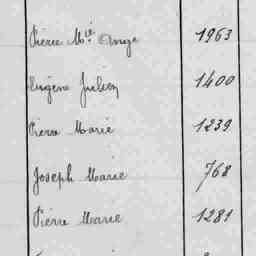 Pierre Mie Ange 1963
Eugène Julien 1400
Pierre Marie 1239
Joseph Marie 768
Pierre Marie 1281